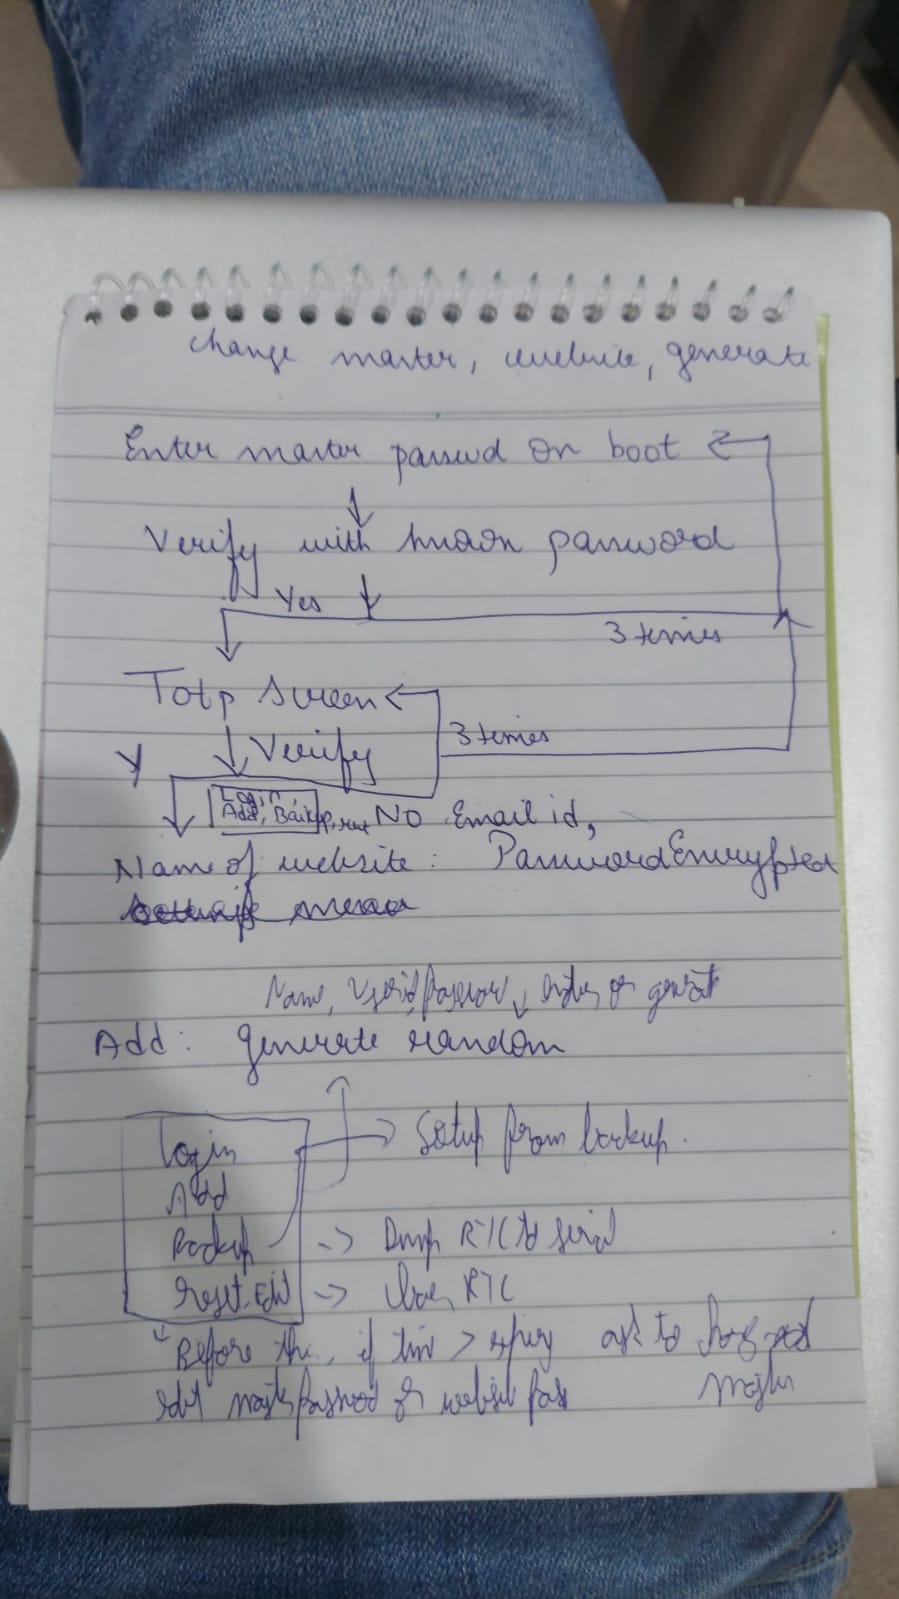 change master, website, generate
Enter master passwd on boot
Verify with known password
Yes
3 times
Totp screen
Y Verify 3 times
Login,
Add, Backup, NO Email id,
Name of website: Password Encrypted
Name, Userid, password, or generate
Add: generate random
Login Setup from backup.
Add
Backup -> Dump RTC to serial
Reset. Edit -> RTC
Before this, if time > expiry ask to
edit master password or website pass master